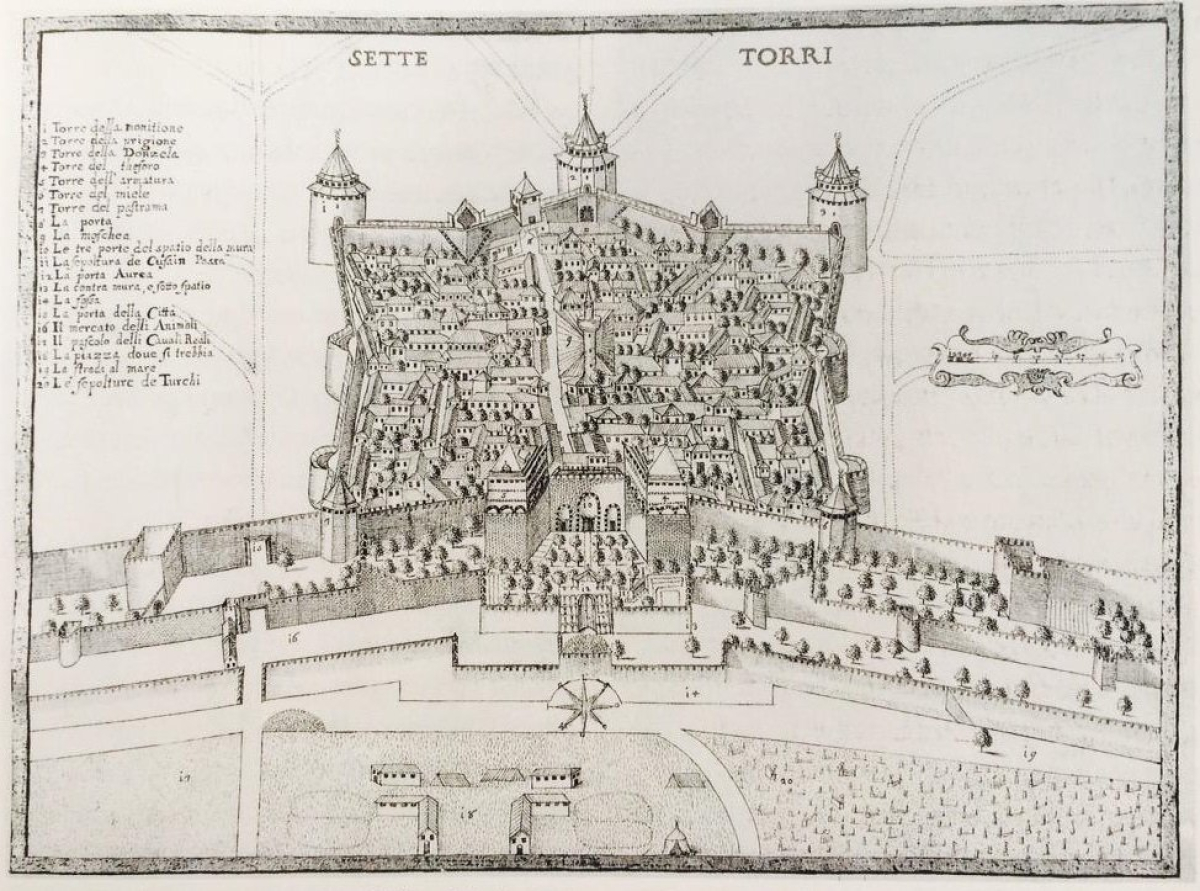 SETTE TORRI
1 Torre della monitione
2 Torre della prigione
3 Torre della Donzela
4 Torre del thesoro
5 Torre dell'armatura
6 Torre del miele
7 Torre del pastrama
8 La porta
9 La moschea
10 Le tre porte del spatio della mura
11 La sepoltura de Cussain Passa
12 La porta Aurea
13 La contra mura, e sotto spatio
14 La fossa
15 La porta della Città
16 Il mercato delli Animali
17 Il pascolo delli Cavali Reali
18 La piazza dove si trebbia
19 La strada al mare
20 Le sepolture de Turchi
1
2
3
9
10
16
14
19
17
20
18